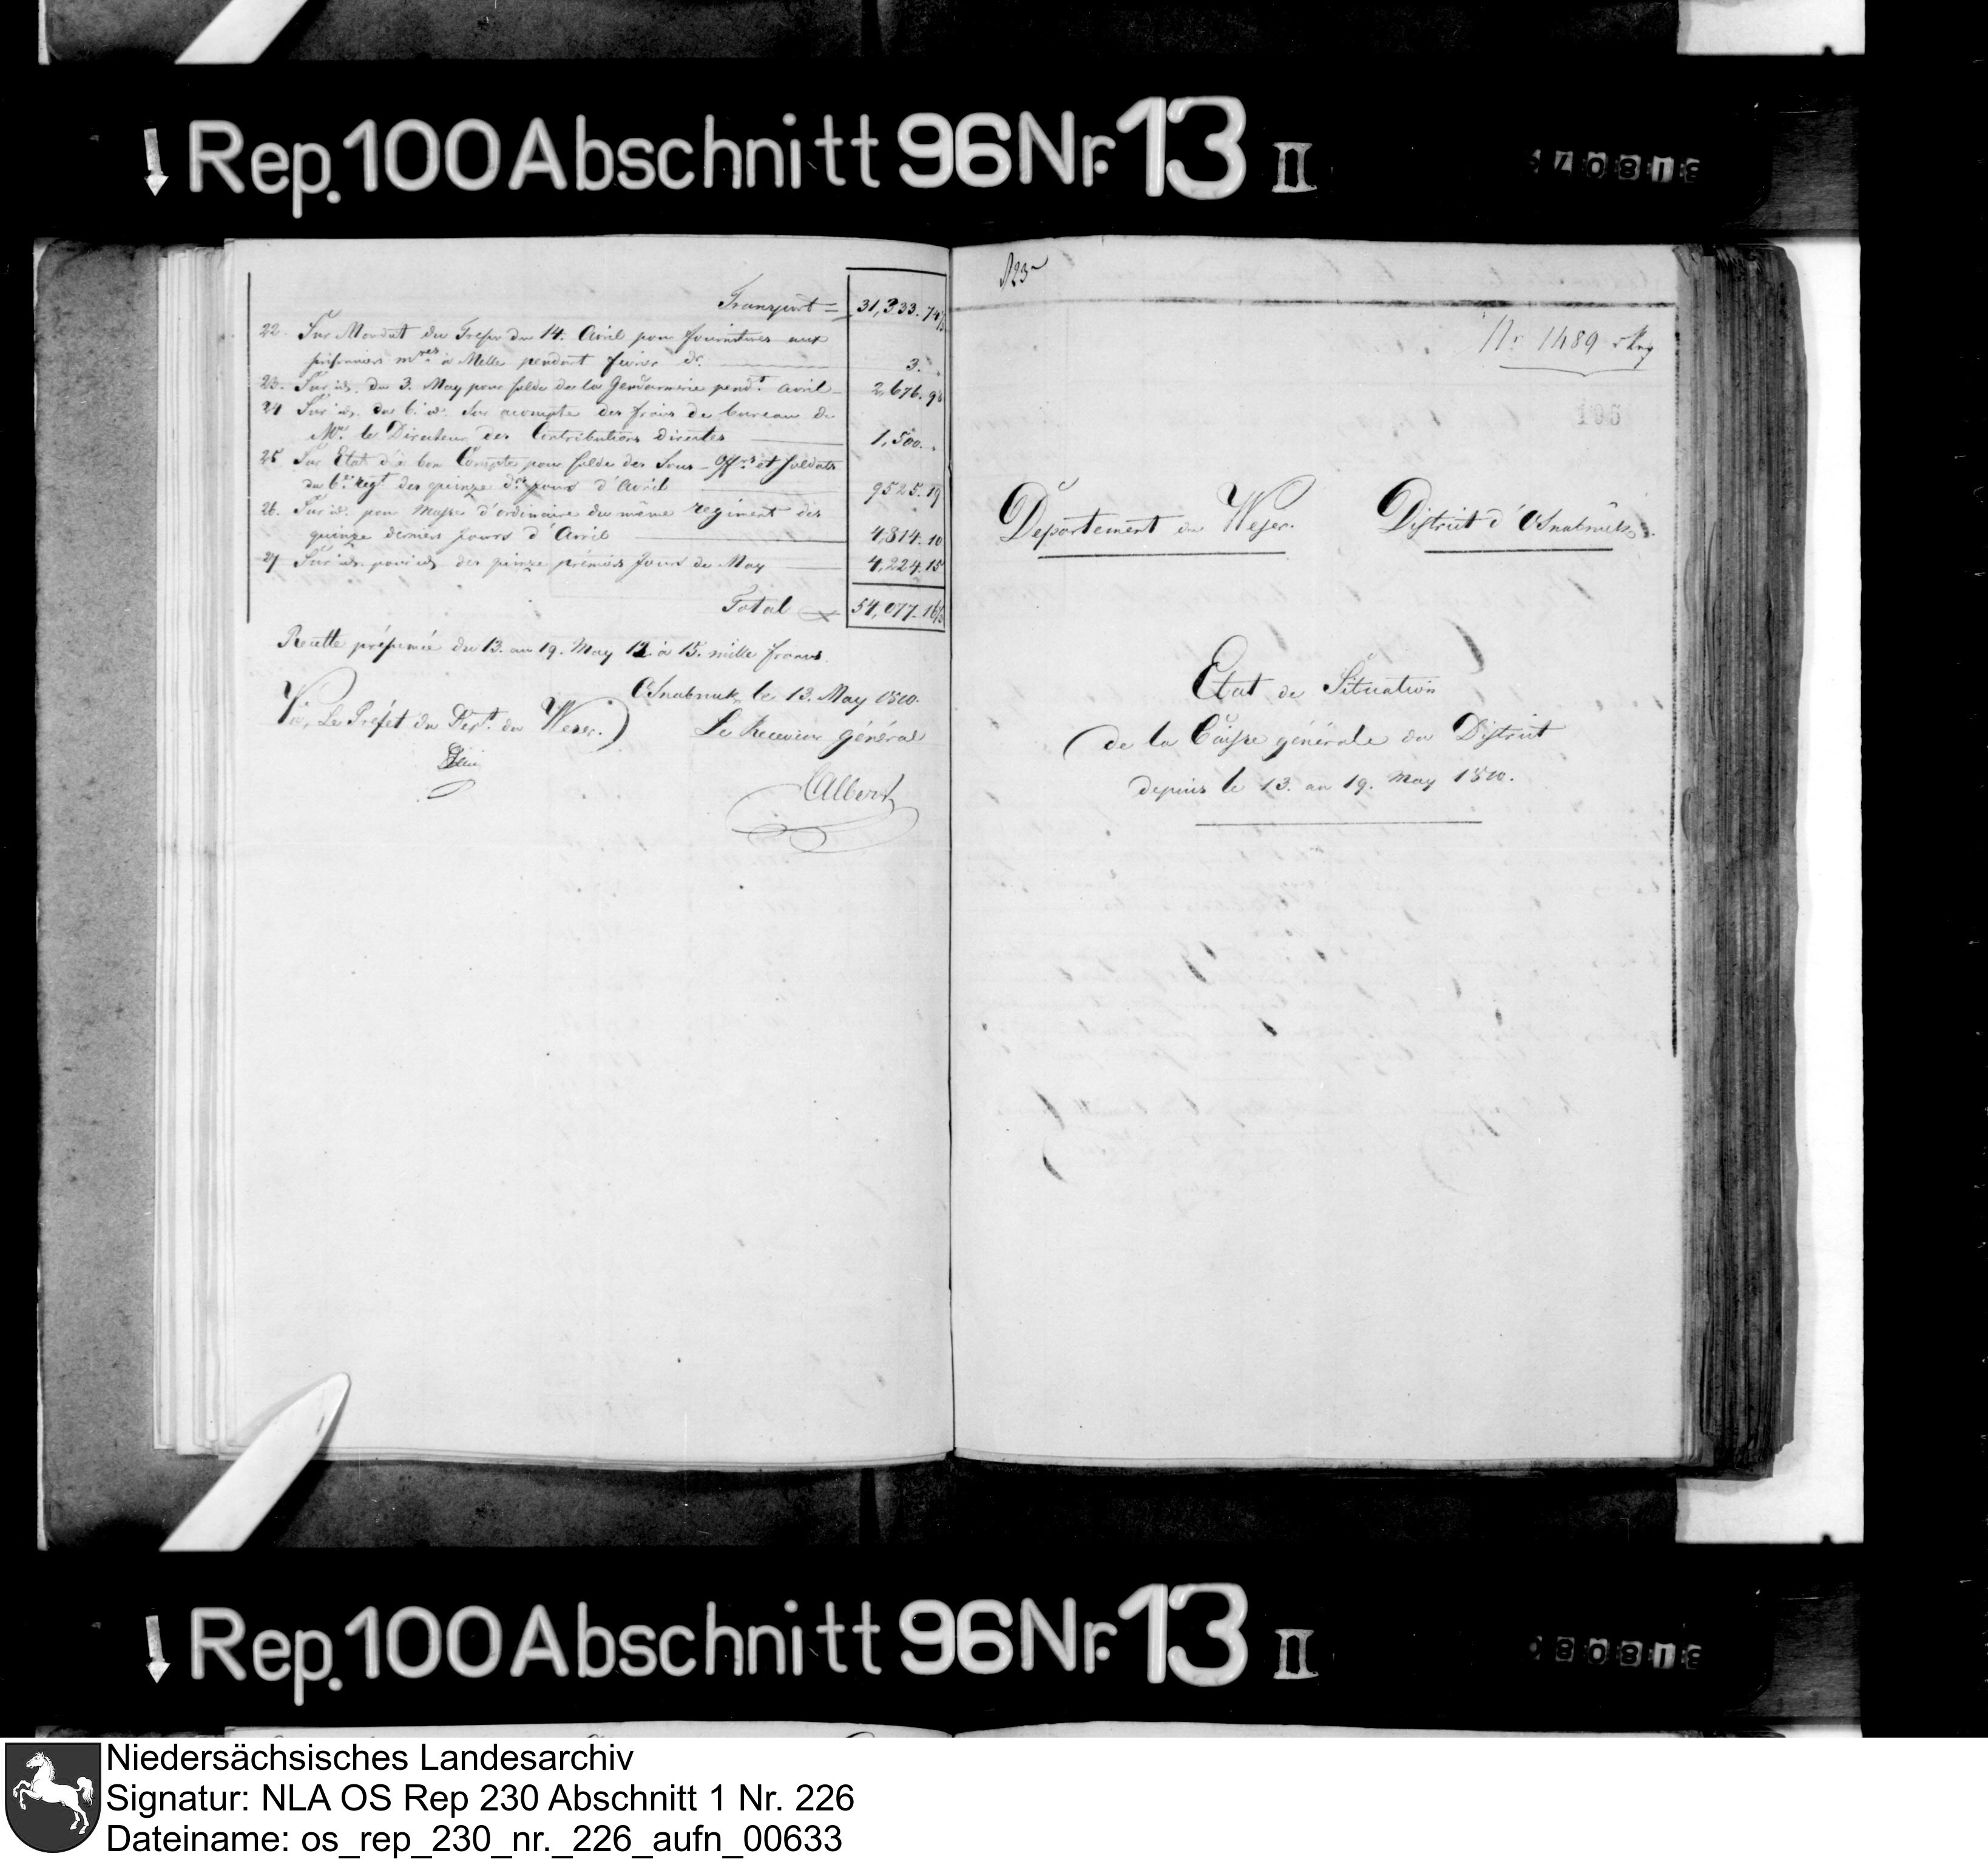 Rep. 100 Abschnitt 96 Nr. 13 II
Transport = 31,333. 74
22. Sur Mandat du Tresor du 14. Avril pour fournitures aux
prisonniers mres à Melle pendant fevrier dr. 3. .
23. Sur id. du 3. May pour solde de la Gendarmerie pendt avril 2,676. 98
24 Sur id. du 6. id. Sur acompte des frais de bureau de
Mr. le Directeur des Contributions directes 1,500. .
25. Sur Etat d'à bon Compte pour solde des Sous-Offrs et soldats
du 6e regt des quinze drs jours d'Avril 9525. 19
26. Sur id. pour Masse d'ordinaire du même regiment des
quinze derniers jours d'Avril 4,814. 10
27 Sur id. pour id. des quinze prémiers jours de May 4,224. 15
Total 54,077. 16
Recette présumée du 13. au 19. May 12 à 15. mille francs.
Osnabruck, le 13. May 1810.
Vu, Le Préfet du Dept. du Weser.
Le Receveur général
Albert
123
Nr 1489
195
Departement du Weser. District d'Osnabrück.
Etat de Situation
de la Caisse générale du District
depuis le 13. au 19. May 1810.
Rep. 100 Abschnitt 96 Nr. 13 II
Niedersächsisches Landesarchiv
Signatur: NLA OS Rep 230 Abschnitt 1 Nr. 226
Dateiname: os_rep_230_nr._226_aufn_00633